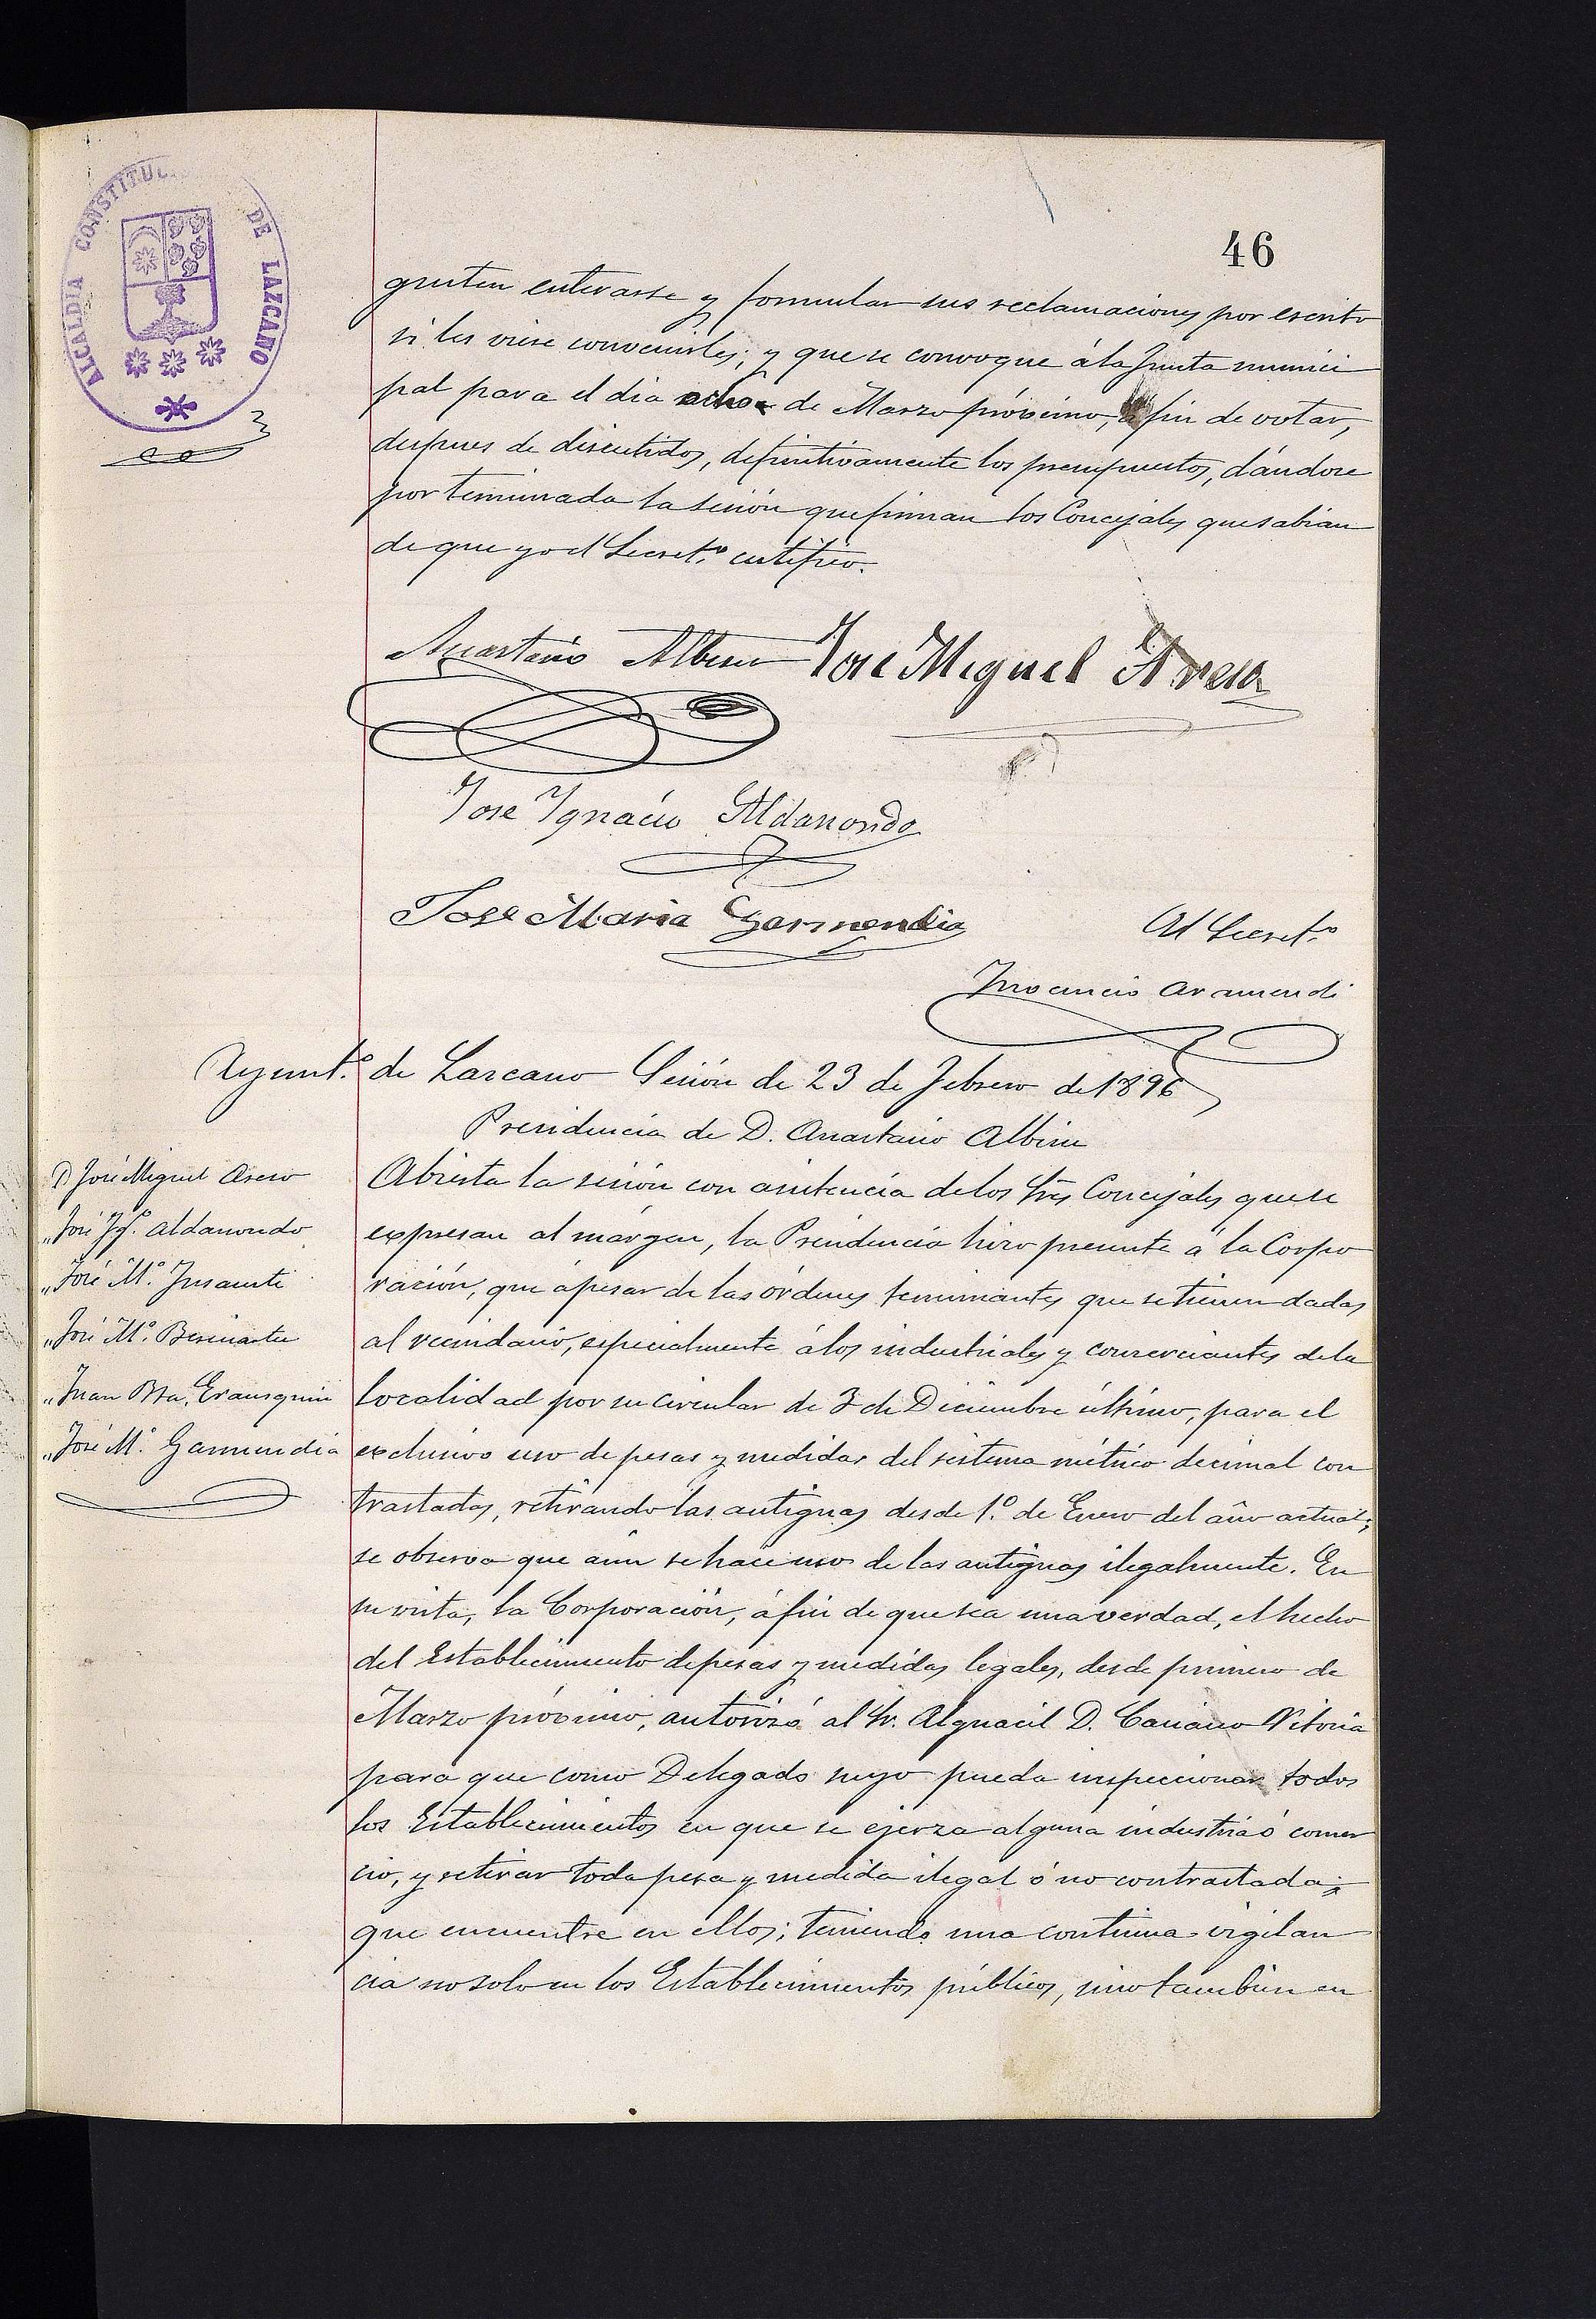 ALCALDIA CONSTITUC DE LAZCANO
46
gusten enterarse y formular sus reclamaciones por escrito
si les viese convenirles; y que se convoque á la Junta munici
pal para el dia ocho de Marzo próximo, á fin de votar,
despues de discutidos, definitivamente los presupuestos, dándose
por terminada la sesión que firman los Concejales que sabian
de que yo el Secret.º certifico.
Anastasio Albisu José Miguel Aseso
Jose Ignacio Aldanondo
Jose Maria Garmendia
El Secret.º
Inocencio Aramendi
Ayunt.º de Lazcano Sesión de 23 de Febrero de 1896
Presidencia de D. Anastasio Albisu
D. José Miguel Aseso
" José Ig.º Aldanondo
" José M.ª Insausti
" José M.ª
" Juan Bta. Erausquin
" José M.ª Garmendia
Abierta la sesión con asistencia de los Sres Concejales que se
expresan al márgen, la Presidencia hizo presente á la Corpo
ración, que ápesar de las órdenes terminantes que se tienen dadas
al vecindario, especialmente á los industriales y comerciantes de la
localidad por su circular de 3 de Diciembre último, para el
exclusivo uso de pesas y medidas del sistema métrico decimal con
trastados, retirando las antiguas desde 1.º de Enero del año actual;
se observa que aún se hace uso de las antiguas ilegalmente. En
su vista, la Corporación, á fin de que sea una verdad, el hecho
del Establecimiento de pesas y medidas legales, desde primero de
Marzo próximo, autorizó al Sr. Alguacil D. Vitoria
para que como Delegado suyo pueda inspeccionar todos
los Establecimientos en que se ejerza alguna industria ó comer
cio, y retirar toda pesa y medida ilegal ó no contrastada;
que encuentre en ellos; teniendo una continua vigilan
cia no solo en los Establecimientos públicos, sino tambien en